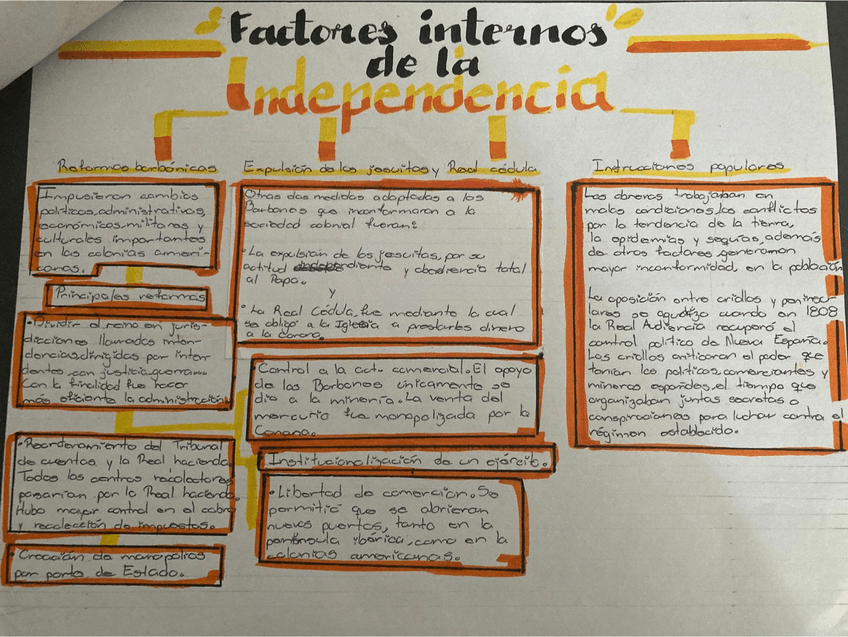 Factores internos
de la
Independencia
Reformas borbónicas
Impusieron cambios
políticos, administrativos,
económicos, militares y
culturales importantes
en las colonias ameri-
canas.
Principales reformas
• Dividir el reino en juris-
dicciones llamadas inten-
dencias, dirigidas por inten-
dentes, con justicia, guerra...
Con la finalidad fue hacer
más eficiente la administración
• Reordenamiento del Tribunal
de cuentas y la Real hacienda
Todos los centros recolectores
pasarían por la Real hacienda.
Hubo mayor control en el cobro
y recolección de impuestos.
• Creación de monopolios
por parte de Estado.
Expulsión de los jesuitas y Real cédula
Otras dos medidas adoptadas a los
Borbones que inconformaron a la
sociedad colonial fueron:
• La expulsión de los jesuitas, por su
actitud y obediencia total
al Papa.
y
• La Real Cédula, fue mediante la cual
se obligó a la Iglesia a prestarles dinero
a la corona.
Control a la act. comercial. El apoyo
de los Borbones únicamente se
dio a la minería. La venta del
mercurio fue monopolizada por la
Corona.
Institucionalización de un ejército.
• Libertad de comercion. Se
permitió que se abrieran
nuevos puertos, tanto en la
península ibérica, como en la
colonias americanas.
Intrucciones populares
Los obreros trabajaban en
malas condiciones, los conflictos
por la tendencia de la tierra,
la epidemias y sequías, además
de otros factores, generaron
mayor inconformidad, en la población
La oposición entre criollos y peninsu-
lares se agudizo cuando en 1808
la Real Audiencia recuperó el
control político de Nueva España.
Los criollos criticaron el poder que
tenían los políticos, comerciantes y
mineros españoles, el tiempo que
organizaban juntas secretas o
conspiraciones para luchar contra el
régimen establecido.